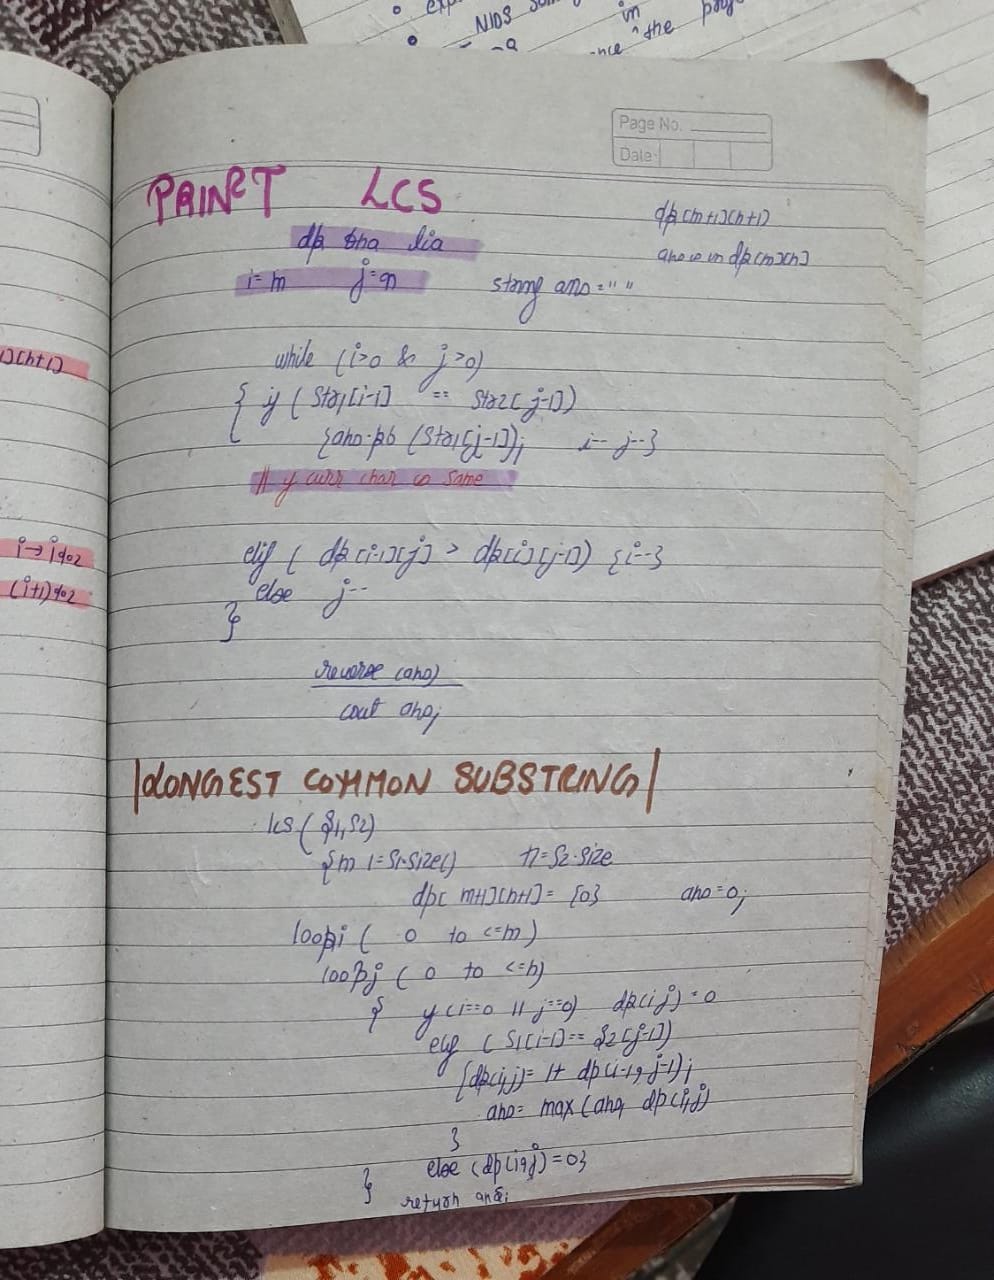 NIDS
in
the
Page No.
Date
PRINT LCS
dp[m+1][n+1]
ans is in dp[m][n]
dp bna lia
i=m j=n string ans=" "
while (i>0 & j>0)
{ if ( Str1[i-1] == Str2[j-1])
{ans.pb (Str1[j-1]); i-- j--}
// if curr char is same
elif ( dp[i-1][j] > dp[i][j-1]) {i--}
else j--
}
reverse (ans)
cout ans;
|LONGEST COMMON SUBSTRING|
lcs( S1,S2)
{m 1=S1.size() n=S2.size
dp[ m+1][n+1]= {0} ans=0;
loopi ( 0 to <=m)
loopj ( 0 to <=n)
{ if (i==0 || j==0) dp(i,j)=0
elif ( S1[i-1]== S2[j-1])
{dp(i,j)= 1+ dp(i-1, j-1);
ans= max(ans, dp(i,j)
}
else (dp(i,j)=0}
}
return ans;
][n+1]
i→i%2
(i+1)%2